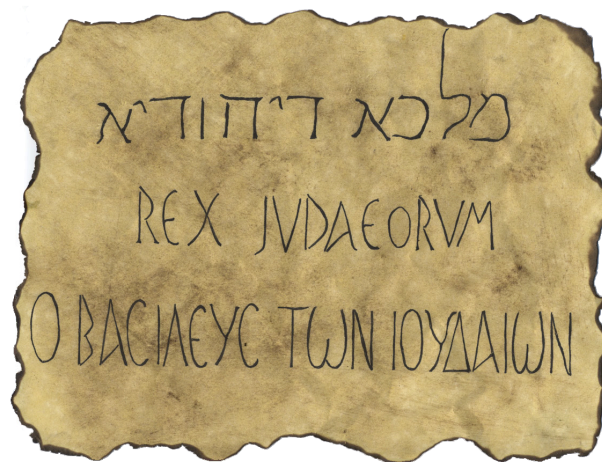 מלכא דיהודיא
REX JVDAEORVM
Ο ΒΑϹΙΛΕΥϹ ΤωΝ ΙΟΥΔΑΙωΝ